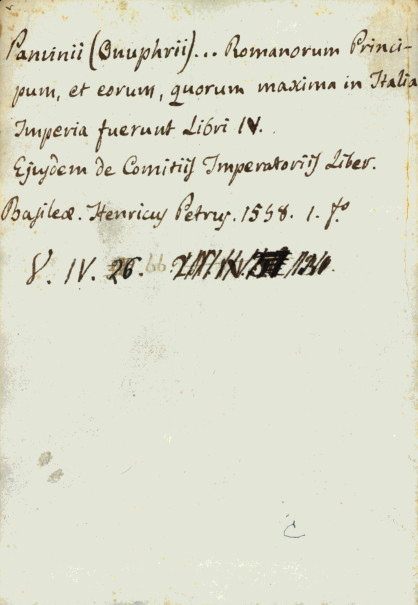 Panvinii (Onuphrii)... Romanorum Princi-
pum, et eorum, quorum maxima in Italia
Imperia fuerunt Libri IV.
Ejusdem de Comitiis Imperatoriis Liber.
Basileæ. Henricus Petrus. 1558. 1. fo
V. IV. 26. 66.
c